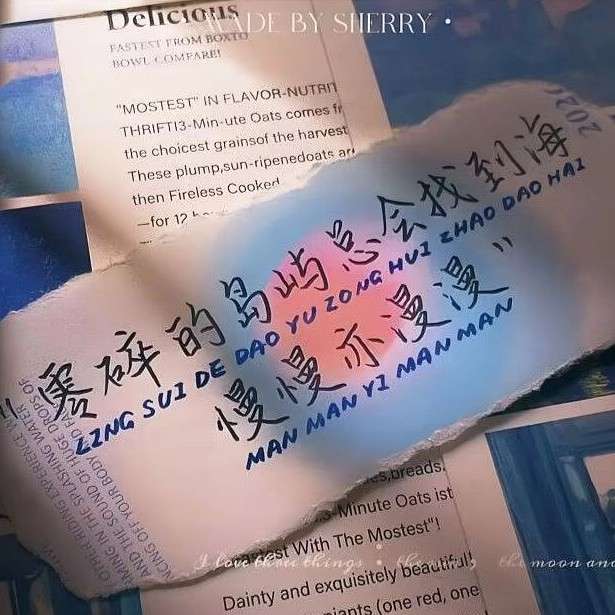 MADE BY SHERRY •
Delicious
FASTEST FROM BOXTO
BOWL COMFARE!
"MOSTEST" IN FLAVOR-NUTRIT
THRIFTI3-Min-ute Oats comes fr
the choicest grainsof the harvest
These plump,sun-ripenedoats ar
then Fireless Cooked
—for 12
2020
"零碎的岛屿总会找到海
LING SUI DE DAO YU ZONG HUI ZHAO DAO HAI
慢慢亦漫漫"
MAN MAN YI MAN MAN
RIDING EXPERIENCE IN
AND THE SOUND OF HUGE DROPS OF
MING IN THE SPLASHING WATER
CING OFF YOUR BODY
es,breads.
3-Minute Oats ist
st With The Mostest"!
I love three things : the moon and
Dainty and exquisitely beautiful!
giants (one red, one